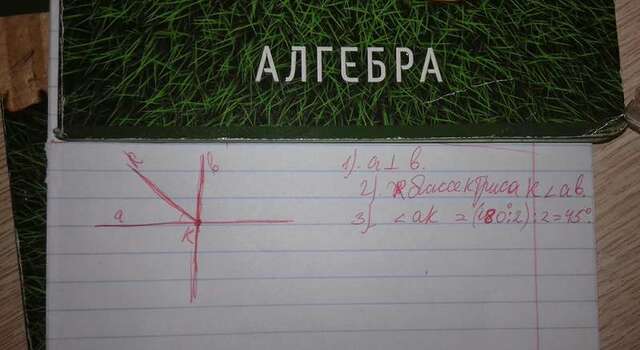 АЛГЕБРА
a
b
K
1). a ⊥ b.
2). биссектриса K ∠ab.
3) ∠aK = (180°:2):2=45°.